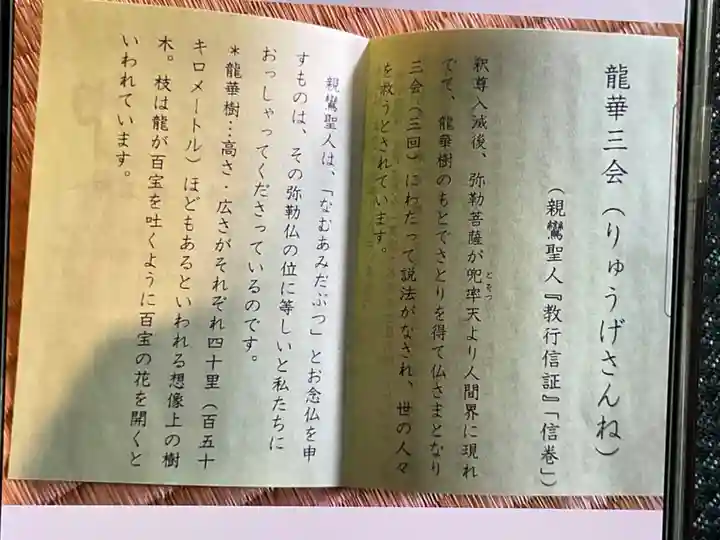 龍華三会（りゅうげさんね）
（親鸞聖人『教行信証』「信巻」）
釈尊入滅後、弥勒菩薩が兜率天より人間界に現れ
とそつ
でて、龍華樹のもとでさとりを得て仏さまとなり
三会（三回）にわたって説法がなされ、世の人々
を救うとされています。
親鸞聖人は、「なむあみだぶつ」とお念仏を申
すものは、その弥勒仏の位に等しいと私たちに
おっしゃってくださっているのです。
＊龍華樹…高さ・広さがそれぞれ四十里（百五十
キロメートル）ほどもあるといわれる想像上の樹
木。枝は龍が百宝を吐くように百宝の花を開くと
いわれています。